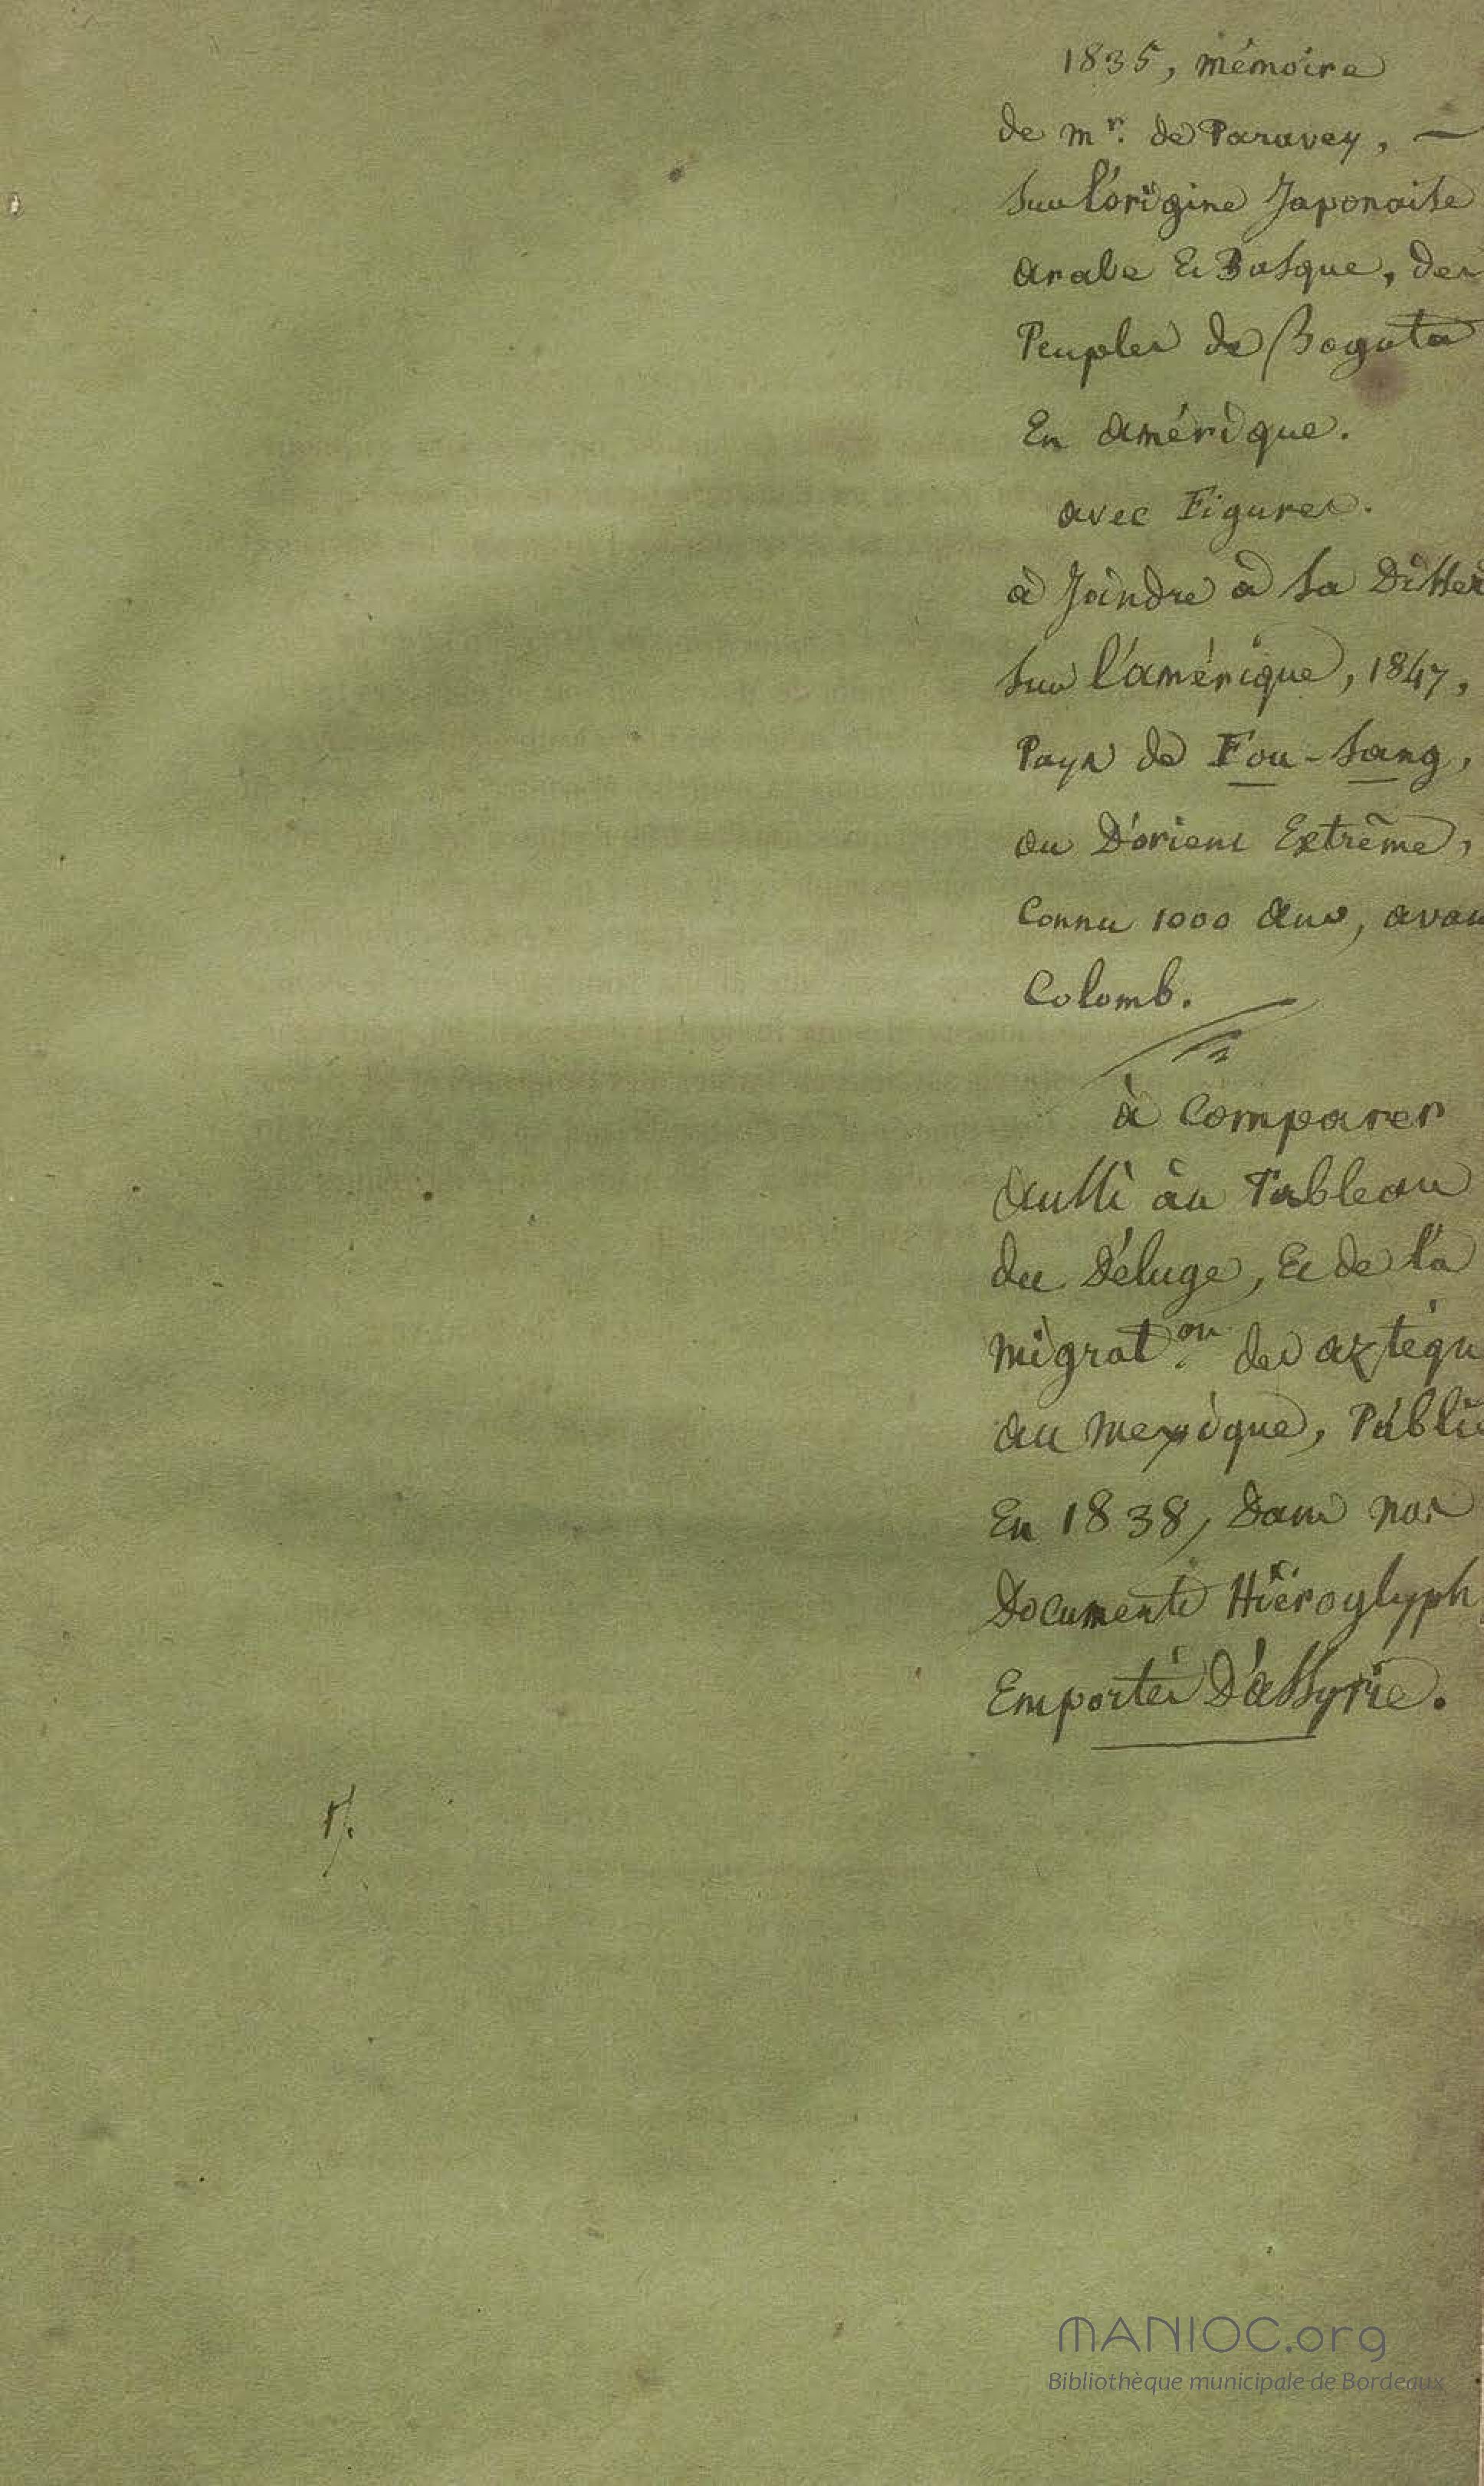 1835, mémoire
de mr. de Paravey, —
sur l'origine Japonaise
arabe Et Basque, des
Peuples de Bogota
En amérique.
avec Figures.
à Joindre à sa Disser
sur l'amérique, 1847,
Pays de Fou-sang,
ou D'orient Extrême,
Connu 1000 ans, avan
Colomb.
à Comparer
aussi au Tableau
du Déluge, Et de la
migrat.on des aztéqu
au mexique, Publié
En 1838, Dans nos
Documents Hiéroglyph
Emportés D'assyrie.
MANIOC.org
Bibliothèque municipale de Bordeaux